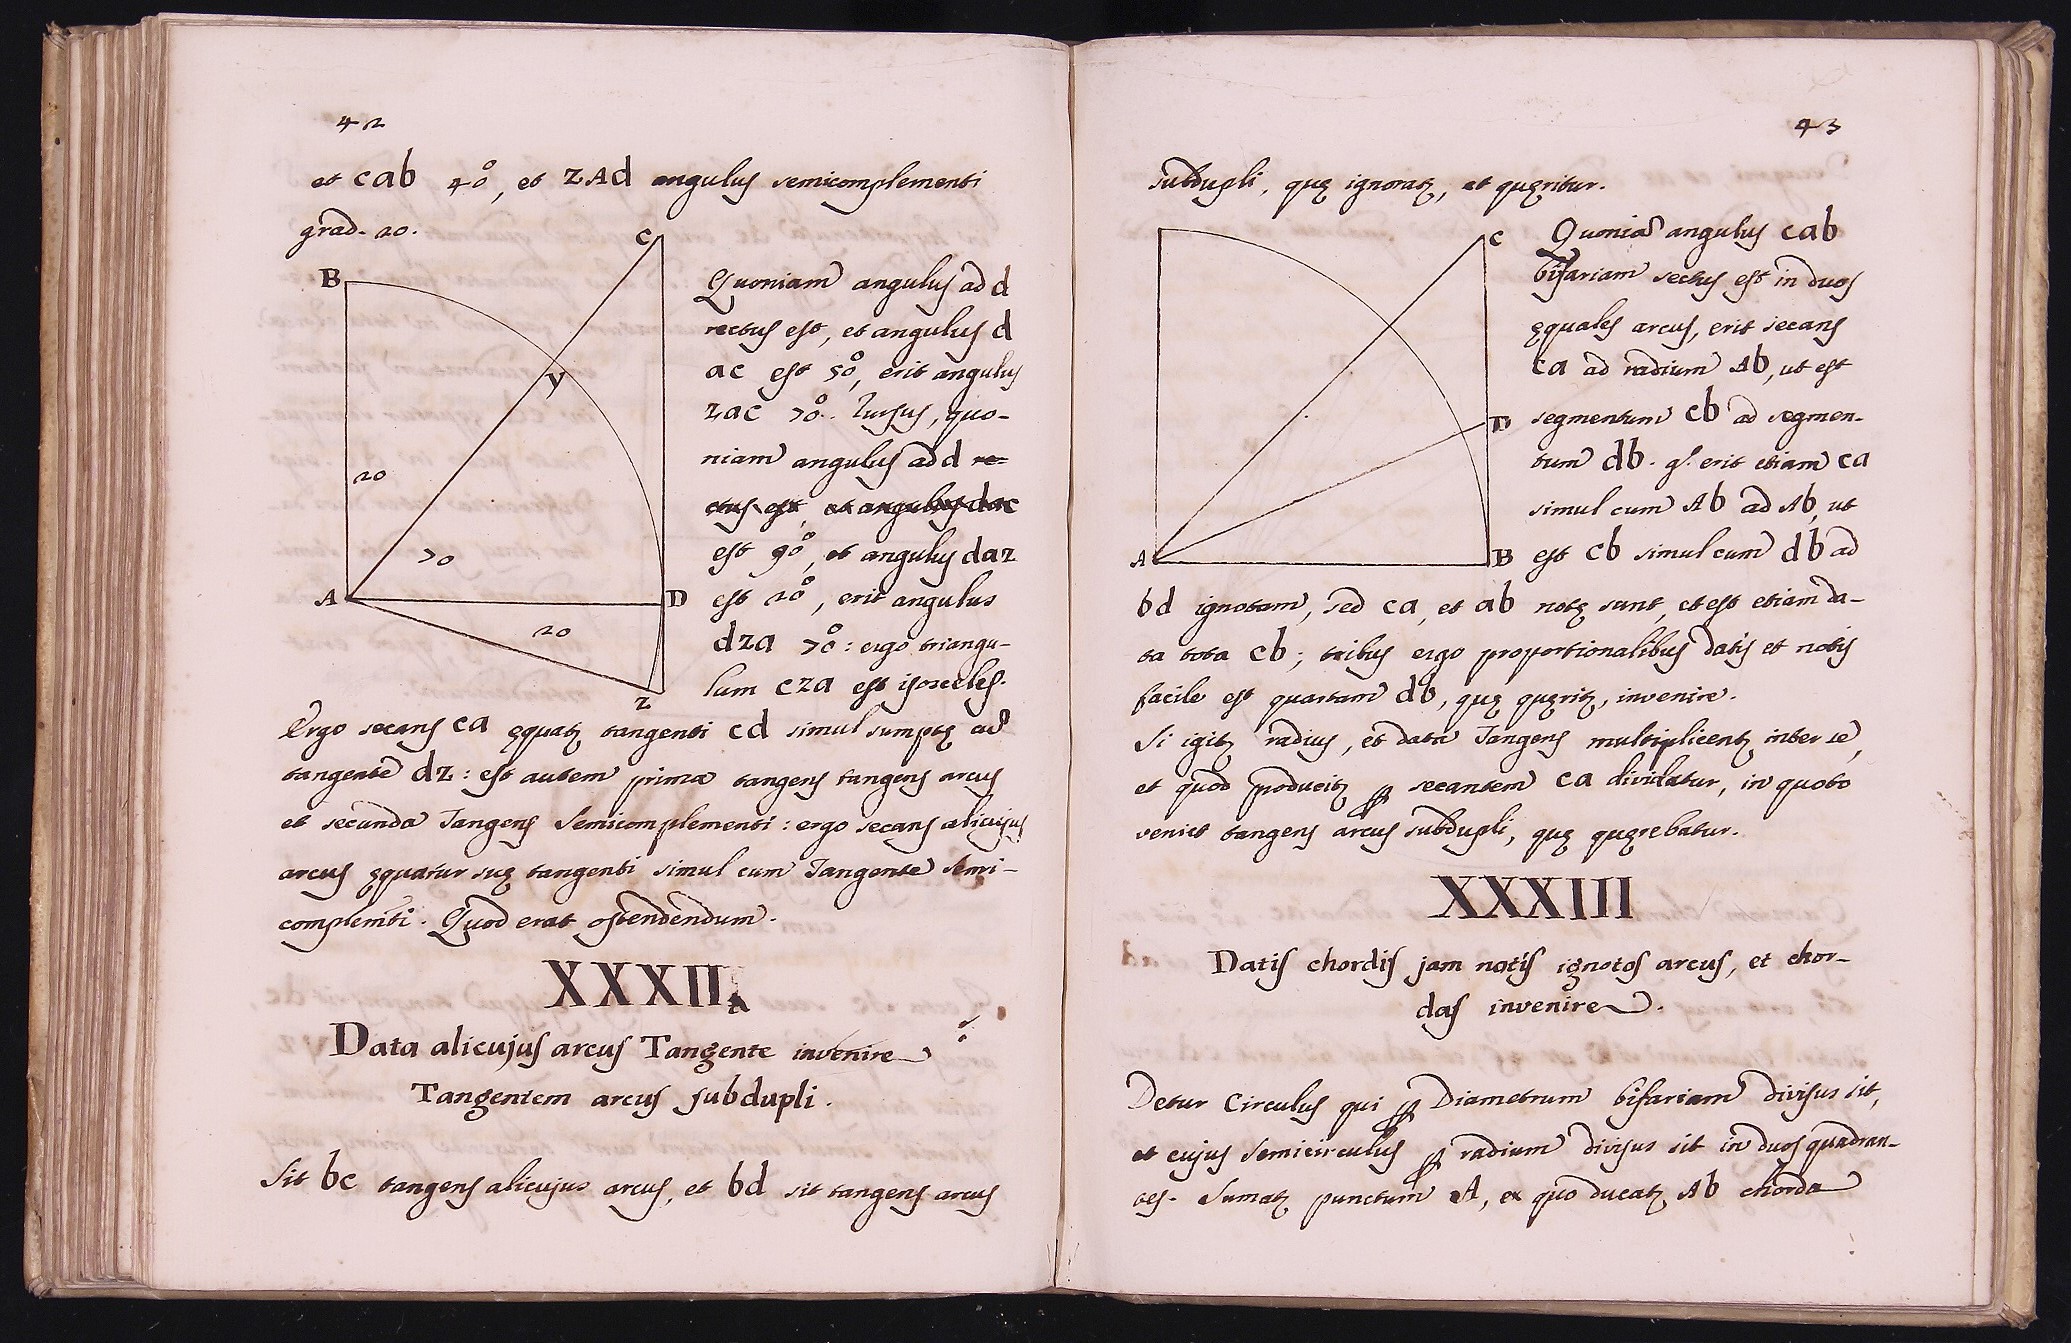 42
et cab 40°, et ZAd angulus semicomplementi
grad. 20.
B
C
y
20
70
A
D
20
Z
Quoniam angulus ad d
rectus est, et angulus d
ac est 50°, erit angulus
zac 70°. Rursus, quo-
niam angulus ad d re-
ctus est, et angulus dac
est 90°, et angulus daz
est 20°, erit angulus
dza 70°: ergo triangu-
lum cza est isosceles.
Ergo secans ca ęquatꝫ tangenti cd simul sumptę cū
tangentē dz: est autem prima tangens tangens arcus
et secunda Tangens Semicomplementi: ergo secans alicujus
arcus ęquatur suę tangenti simul cum Tangente semi-
complemti. Quod erat ostendendum.
XXXII
Data alicujus arcus Tangente invenire
Tangentem arcus subdupli.
Sit bc tangens alicujus arcus, et bd sit tangens arcus
43
subdupli, quę ignoratꝫ, et quęritur.
C
D
A
B
Quoniā angulus cab
bifariam sectus est in duos
ęquales arcus, erit secans
ca ad radium Ab, ut est
segmentum cb ad segmen-
tum db. gͦ. erit etiam ca
simul cum Ab ad Ab, ut
est cb simul cum db ad
bd ignotam, sed ca, et ab notę sunt, et est etiam da-
ta tota cb; tribus ergo proportionalibus datis et notis
facile est quartam db, quę quęritꝫ, invenire.
Si igitꝫ radius, et data Tangens multiplicentꝫ inter se,
et quod producitꝫ ꝑ secantem ca dividatur, in quoto
veniet tangens arcus subdupli, quę quęrebatur.
XXXIII
Datis chordis jam notis ignotos arcus, et chor-
das invenire.
Detur Circulus qui ꝑ Diametrum bifariam divisus sit,
et cujus semicirculus ꝑ radium divisus sit in duos quadran-
tes. Sumatꝫ punctum A, ex quo ducatꝫ Ab chorda